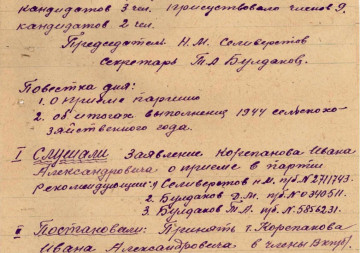 кандидатов 3 чел. Присутствовало членов 9,
кандидатов 2 чел.
Председатель Н.М. Селиверстов
Секретарь Т.А Булдаков.
Повестка дня:
1. О приеме партию
2. об итогах выполнения 1944 сельскохо-
зяйственного года.
I Слушали Заявление Корепанова Ивана
Александровича о приеме в партию
Рекомендующие: 1 Селиверстов Н.М. п/б. N 2711743.
2. Булдаков Д.М. п/б N 0340511.
3. Булдаков Т.А. п/б. N. 5856231.
II Постановили: Принять т. Корепанова
Ивана Александровича в члены Вкп/б/.